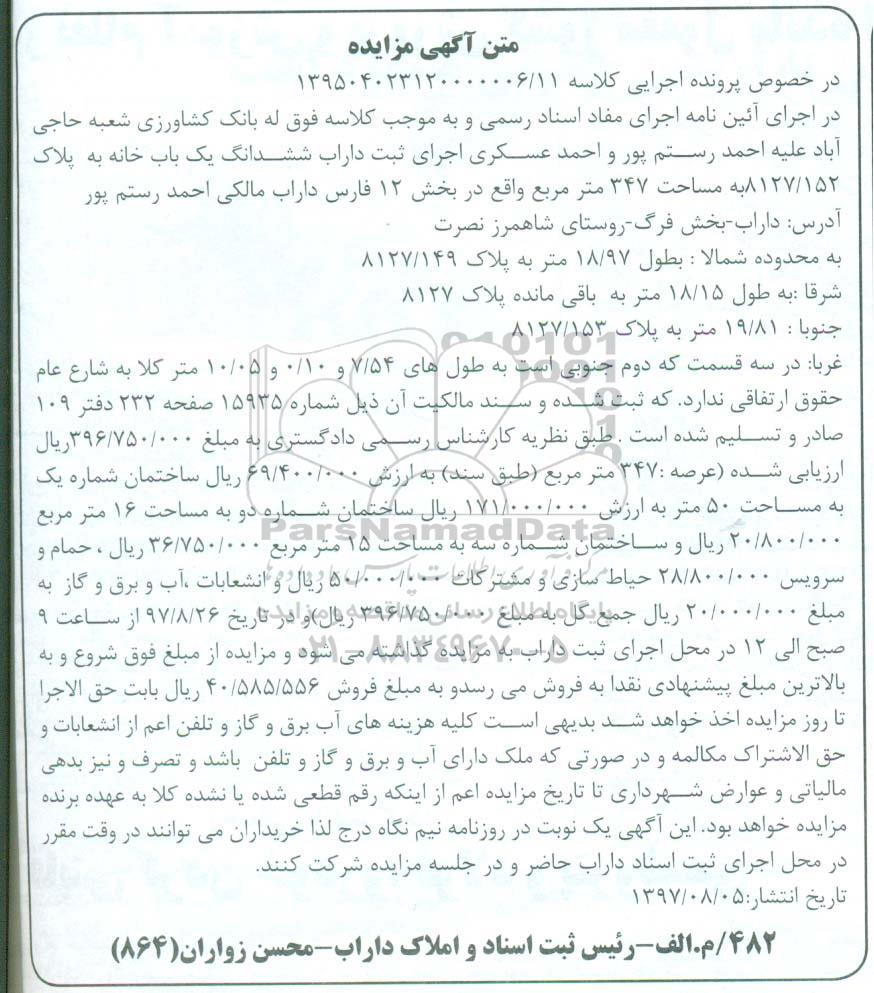 متن آگهی مزایده
در خصوص پرونده اجرایی کلاسه ۱۳۹۵۰۴۰۲۳۱۲۰۰۰۰۰۰۶/۱۱
در اجرای آئین نامه اجرای مفاد اسناد رسمی و به موجب کلاسه فوق له بانک کشاورزی شعبه حاجی
آباد علیه احمد رستم پور و احمد عسکری اجرای ثبت داراب ششدانگ یک باب خانه به پلاک
۸۱۲۷/۱۵۲به مساحت ۳۴۷ متر مربع واقع در بخش ۱۲ فارس داراب مالکی احمد رستم پور
آدرس: داراب-بخش فرگ-روستای شاهمرز نصرت
به محدوده شمالا : بطول ۱۸/۹۷ متر به پلاک ۸۱۲۷/۱۴۹
شرقا :به طول ۱۸/۱۵ متر به باقی مانده پلاک ۸۱۲۷
جنوبا : ۱۹/۸۱ متر به پلاک ۸۱۲۷/۱۵۳
غربا: در سه قسمت که دوم جنوبی است به طول های ۷/۵۴ و ۰/۱۰ و ۱۰/۰۵ متر کلا به شارع عام
حقوق ارتفاقی ندارد. که ثبت شده و سند مالکیت آن ذیل شماره ۱۵۹۳۵ صفحه ۲۳۲ دفتر ۱۰۹
صادر و تسلیم شده است . طبق نظریه کارشناس رسمی دادگستری به مبلغ ۳۹۶/۷۵۰/۰۰۰ریال
ارزیابی شده (عرصه :۳۴۷ متر مربع (طبق سند) به ارزش ۶۹/۴۰۰/۰۰۰ ریال ساختمان شماره یک
به مساحت ۵۰ متر به ارزش ۱۷۱/۰۰۰/۰۰۰ ریال ساختمان شماره دو به مساحت ۱۶ متر مربع
۲۰/۸۰۰/۰۰۰ ریال و ساختمان شماره سه به مساحت ۱۵ متر مربع ۳۶/۷۵۰/۰۰۰ ریال ، حمام و
سرویس ۲۸/۸۰۰/۰۰۰ حیاط سازی و مشترکات ۵۰/۰۰۰/۰۰۰ ریال و انشعابات ،آب و برق و گاز به
مبلغ ۲۰/۰۰۰/۰۰۰ ریال جمع کل به مبلغ ۳۹۶/۷۵۰/۰۰۰ ریال)و در تاریخ ۹۷/۸/۲۶ از ساعت ۹
صبح الی ۱۲ در محل اجرای ثبت داراب به مزایده گذاشته می شود و مزایده از مبلغ فوق شروع و به
بالاترین مبلغ پیشنهادی نقدا به فروش می رسدو به مبلغ فروش ۴۰/۵۸۵/۵۵۶ ریال بابت حق الاجرا
تا روز مزایده اخذ خواهد شد بدیهی است کلیه هزینه های آب برق و گاز و تلفن اعم از انشعابات و
حق الاشتراک مکالمه و در صورتی که ملک دارای آب و برق و گاز و تلفن باشد و تصرف و نیز بدهی
مالیاتی و عوارض شهرداری تا تاریخ مزایده اعم از اینکه رقم قطعی شده یا نشده کلا به عهده برنده
مزایده خواهد بود. این آگهی یک نوبت در روزنامه نیم نگاه درج لذا خریداران می توانند در وقت مقرر
در محل اجرای ثبت اسناد داراب حاضر و در جلسه مزایده شرکت کنند.
تاریخ انتشار:۱۳۹۷/۰۸/۰۵
۴۸۲/م.الف-رئیس ثبت اسناد و املاک داراب-محسن زواران(۸۶۴)
ParsNamadData
پایگاه اطلاع رسانی مناقصه و مزایده
۰۲۱-۸۸۳۴۹۶۷۰-۵